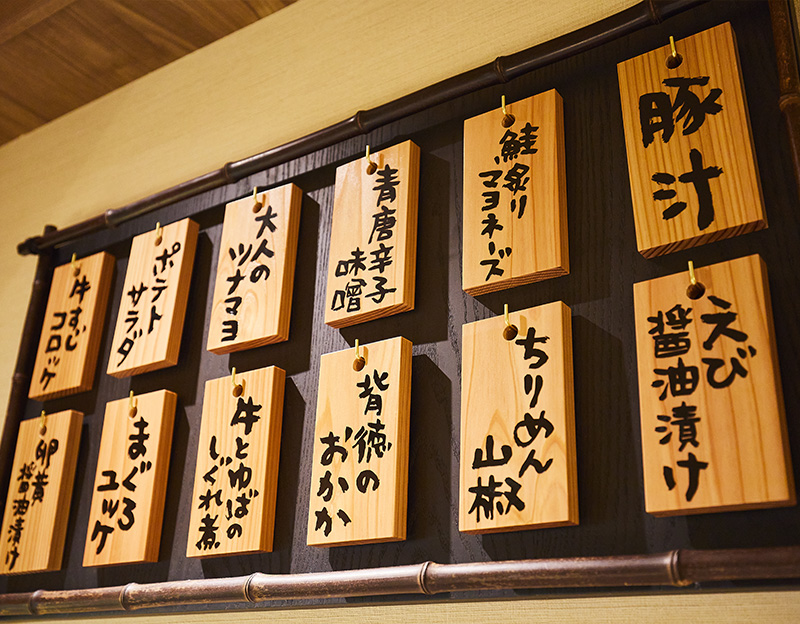 豚汁
鮭炙り
マヨネーズ
青唐辛子
味噌
大人の
ツナマヨ
ポテト
サラダ
牛すじ
コロッケ
えび
醤油漬け
ちりめん
山椒
背徳の
おかか
牛とゆばの
しぐれ煮
まぐろ
ユッケ
卵黄
醤油漬け